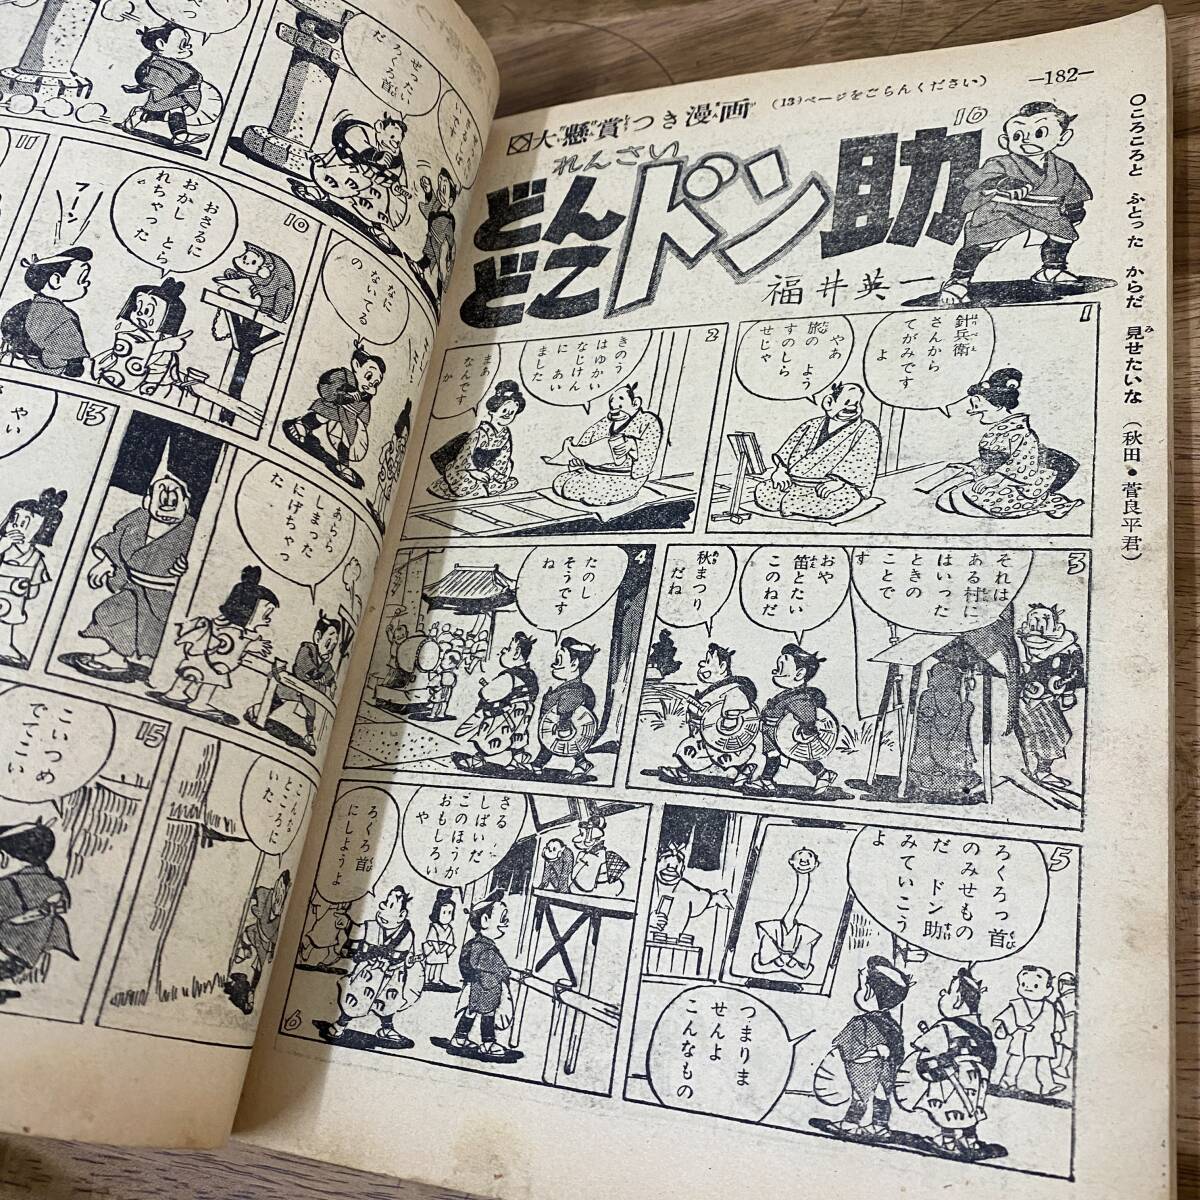 —182—
大懸賞つき漫画
(13)ページをごらんください)
れんさい
どんどこ
ドン助
16
福井英一
○ころころと ふとった からだ 見せたいな (秋田・菅良平君)
1
針兵衛
さんから
てがみです
よ
やあ
旅の よう
すのしら
せじゃ
2
きのう
はゆかい
なじけん
に あい
ました
まあ
なんです
か
3
それは
ある村に
はいった
ときの
ことで
す
おや
笛とたい
このねだ
秋まつり
だね
4
たのし
そうです
ね
5
ろくろっ首
のみせもの
だ ドン助
みていこう
よ
つまりま
せんよ
こんなもの
6
さる
しばいだ
このほうが
おもしろい
や
ろくろ首
にしようよ
ぜったい
ろくろ首
だ
いです
10
なに
ないてる
の
11
おさるに
おかし とら
れちゃった
フーン
あらら
しまった
にげちゃっ
た
13
さ やい
こんな
ところに
いた
15
こいつめ
でてこい